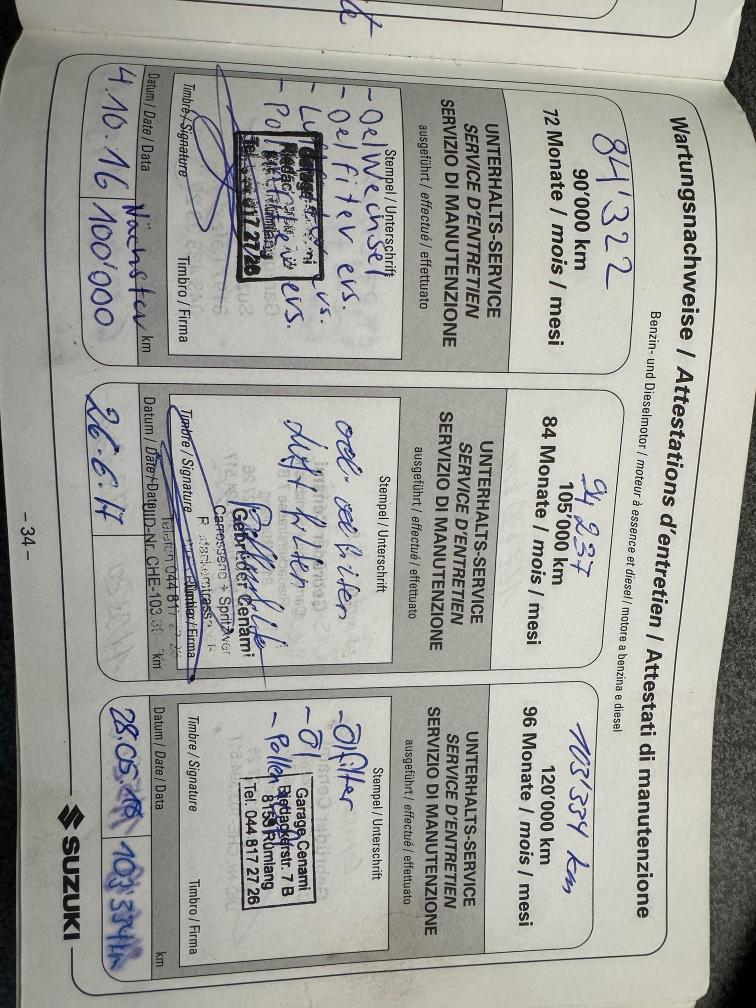 Wartungsnachweise / Attestations d'entretien / Attestati di manutenzione
Benzin- und Dieselmotor / moteur à essence et diesel / motore a benzina e diesel
84'322
90'000 km
72 Monate / mois / mesi
UNTERHALTS-SERVICE
SERVICE D'ENTRETIEN
SERVIZIO DI MANUTENZIONE
ausgeführt / effectué / effettuato
Stempel / Unterschrift
- Oelwechsel
- Oelfiter ers.
Tel. 044 817 27 26
Timbre / Signature
Timbro / Firma
Datum / Date / Data
km
4.10.16
Nächster
100'000
94237
105'000 km
84 Monate / mois / mesi
UNTERHALTS-SERVICE
SERVICE D'ENTRETIEN
SERVIZIO DI MANUTENZIONE
ausgeführt / effectué / effettuato
Stempel / Unterschrift
Gebrüder Cenami
Carrosserie + Spritzwer
Telefon 044 817
Timbre / Signature
Timbro / Firma
Datum / Date / Data
UID-Nr. CHE-103.
km
26.6.17
103'334 km
120'000 km
96 Monate / mois / mesi
UNTERHALTS-SERVICE
SERVICE D'ENTRETIEN
SERVIZIO DI MANUTENZIONE
ausgeführt / effectué / effettuato
Stempel / Unterschrift
- Ölfilter
- Öl
- Pollen
Garage Cenami
Riedackerstr. 7 B
8153 Rümlang
Tel. 044 817 27 26
Timbre / Signature
Timbro / Firma
Datum / Date / Data
km
28.05.18
103'334 km
- 34 -
SUZUKI